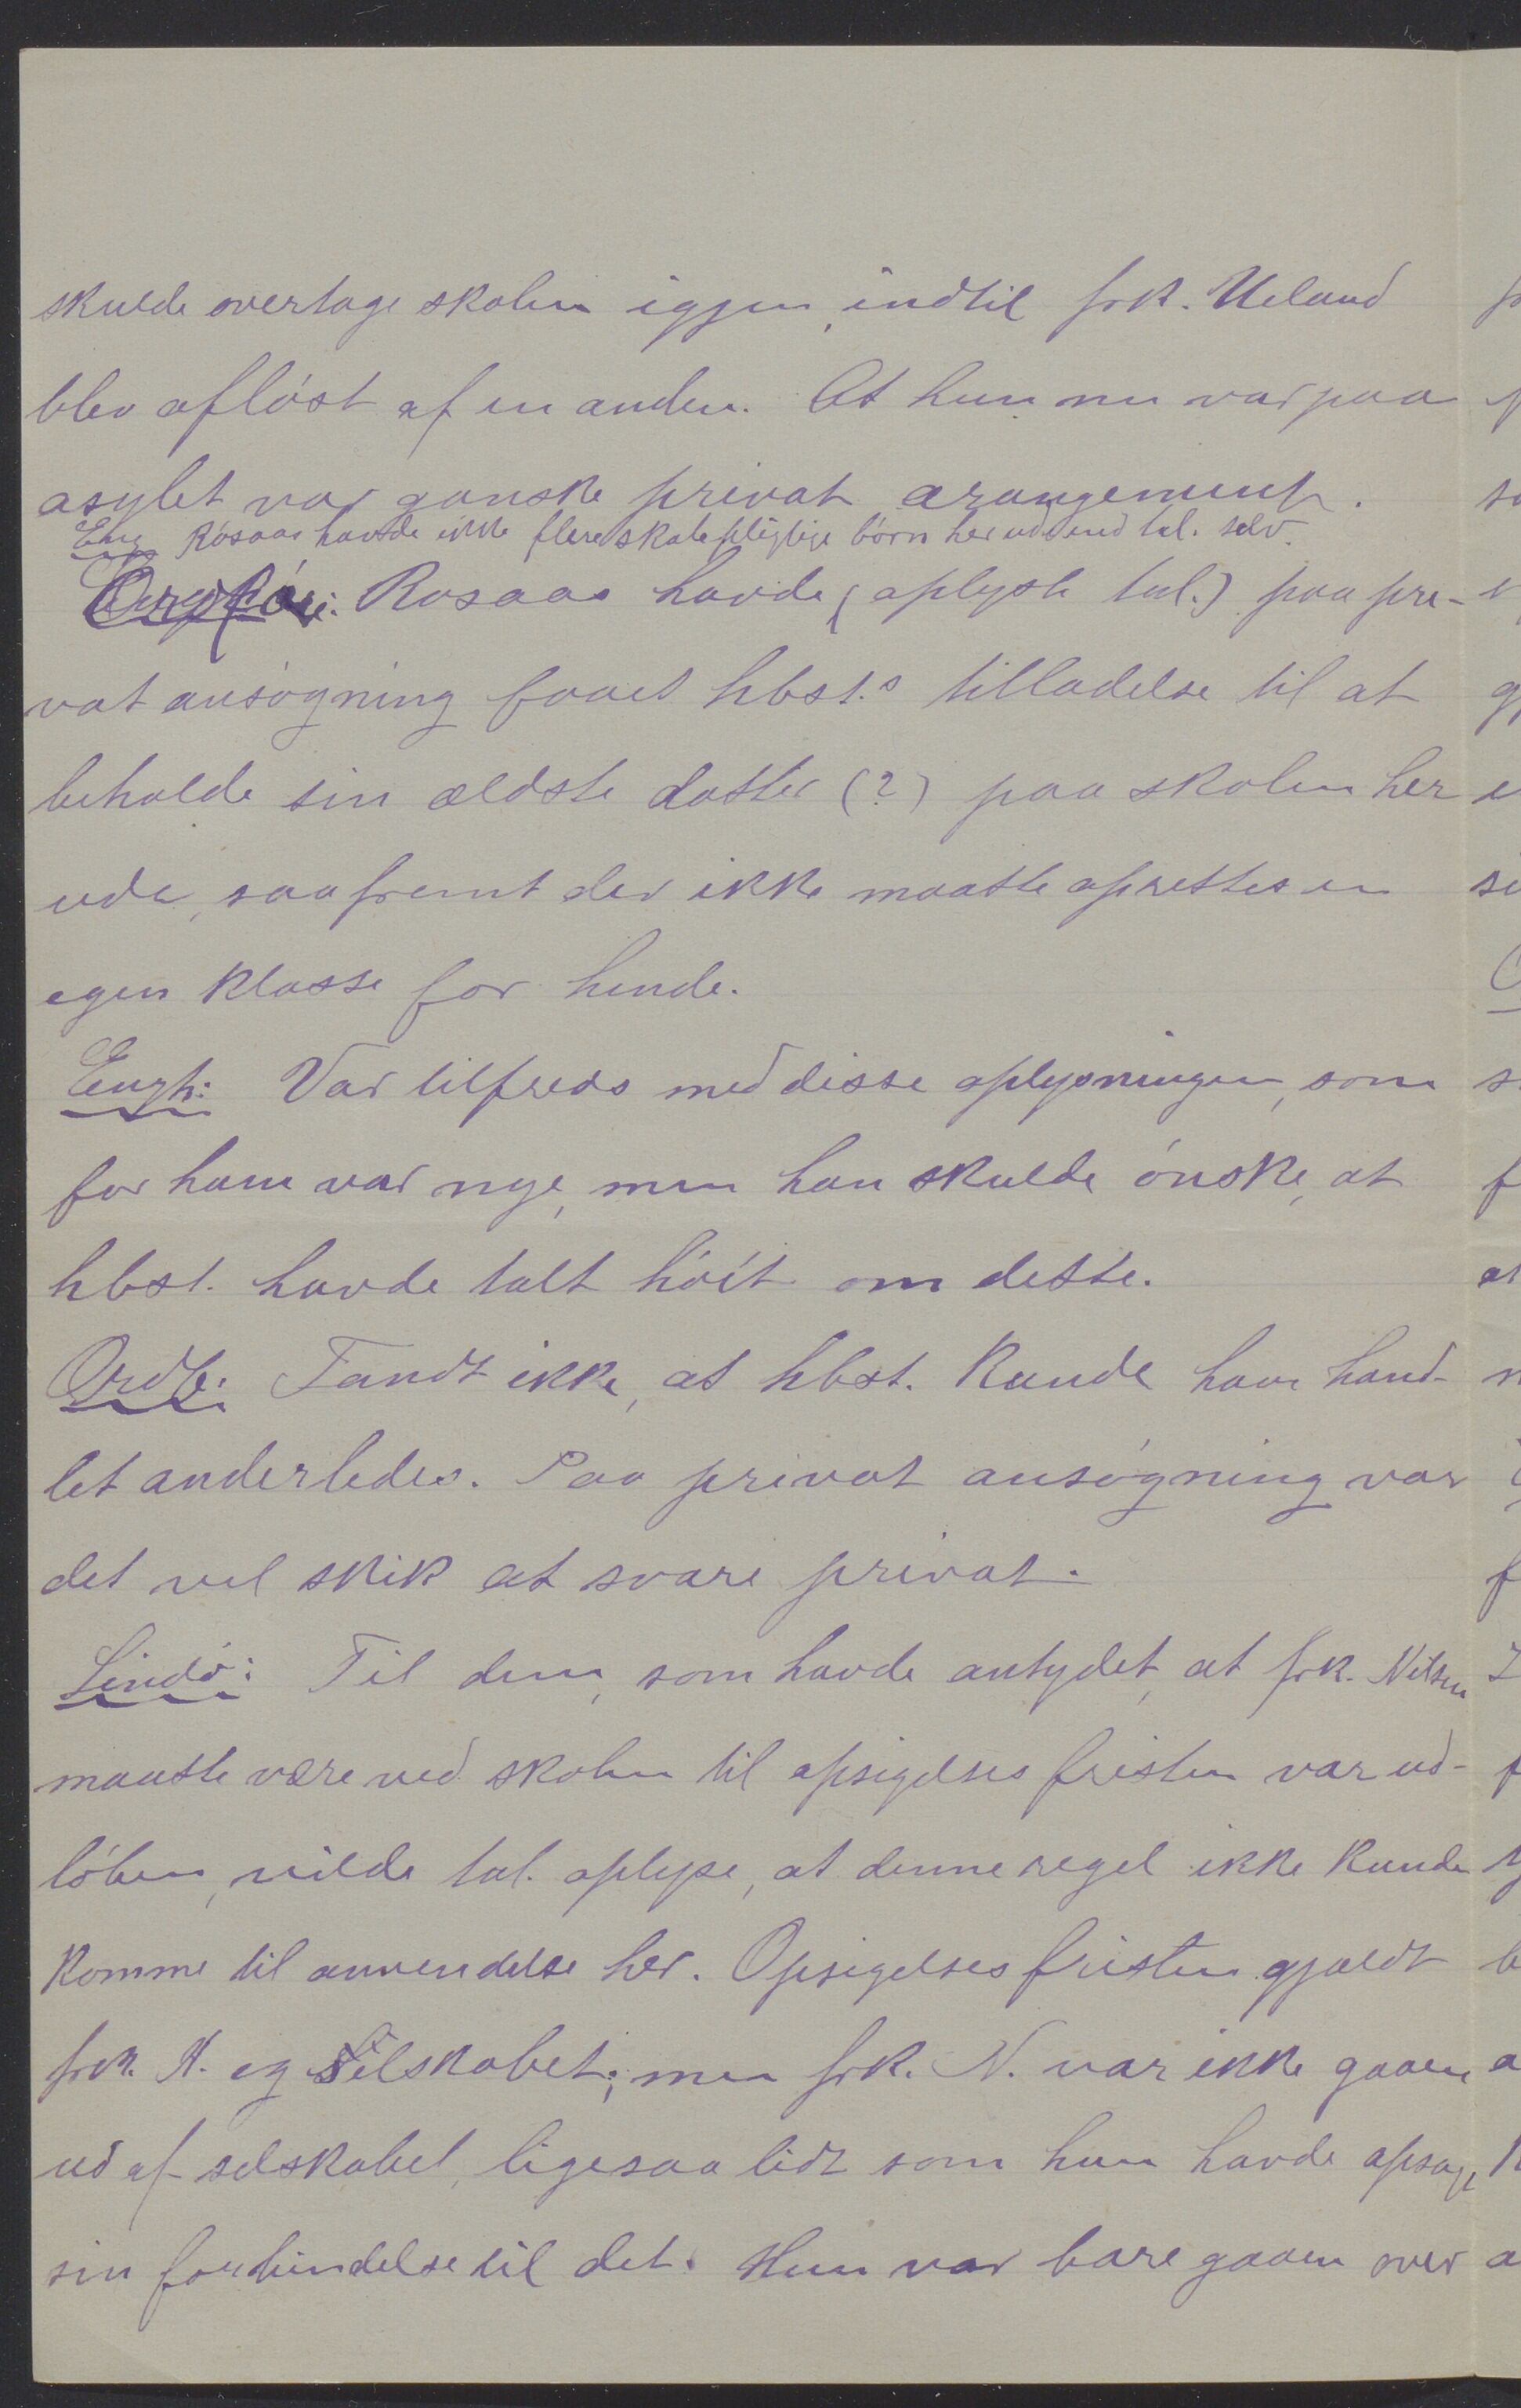 skulde overtage skolen igjen, indtil frk. Ueland
blev aflöst af en anden. At hun nu var paa
asylet var ganske privat arangement.
Eng Rosaas havde ikke flere skolepligtige börn her ude end tal. selv.
Rosaas havde (oplyste tal.) paa pri-
vat ansögning faaet hbst.s tilladelse til at
beholde sin ældste datter (?) paa skolen her
ude, saafremt der ikke maatte oprettes en
egen klasse for hende.
Engh: Var tilfreds med disse oplysninger, som
for ham var nye, men han skulde önske, at
hbst. havde talt höit om dette.
Ordf: Fandt ikke, at hbst. kunde have hand-
let anderledes. Paa privat ansögning var
det vel skik at svare privat.
Lindö: Til dem, som havde antydet, at frk. Nilsen
maatte være ved skolen til opsigelsesfristen var ud-
löben, vilde tal. oplyse, at denne regel ikke kunde
komme til anvendelse her. Opsigelsesfristen gjældt
frk. N. og Selskabet; men frk. N. var ikke gaaen
ud af selskabet, ligesaa lidt som hun havde opsagt
sin forbindelse til det. Hun var bare gaaen over